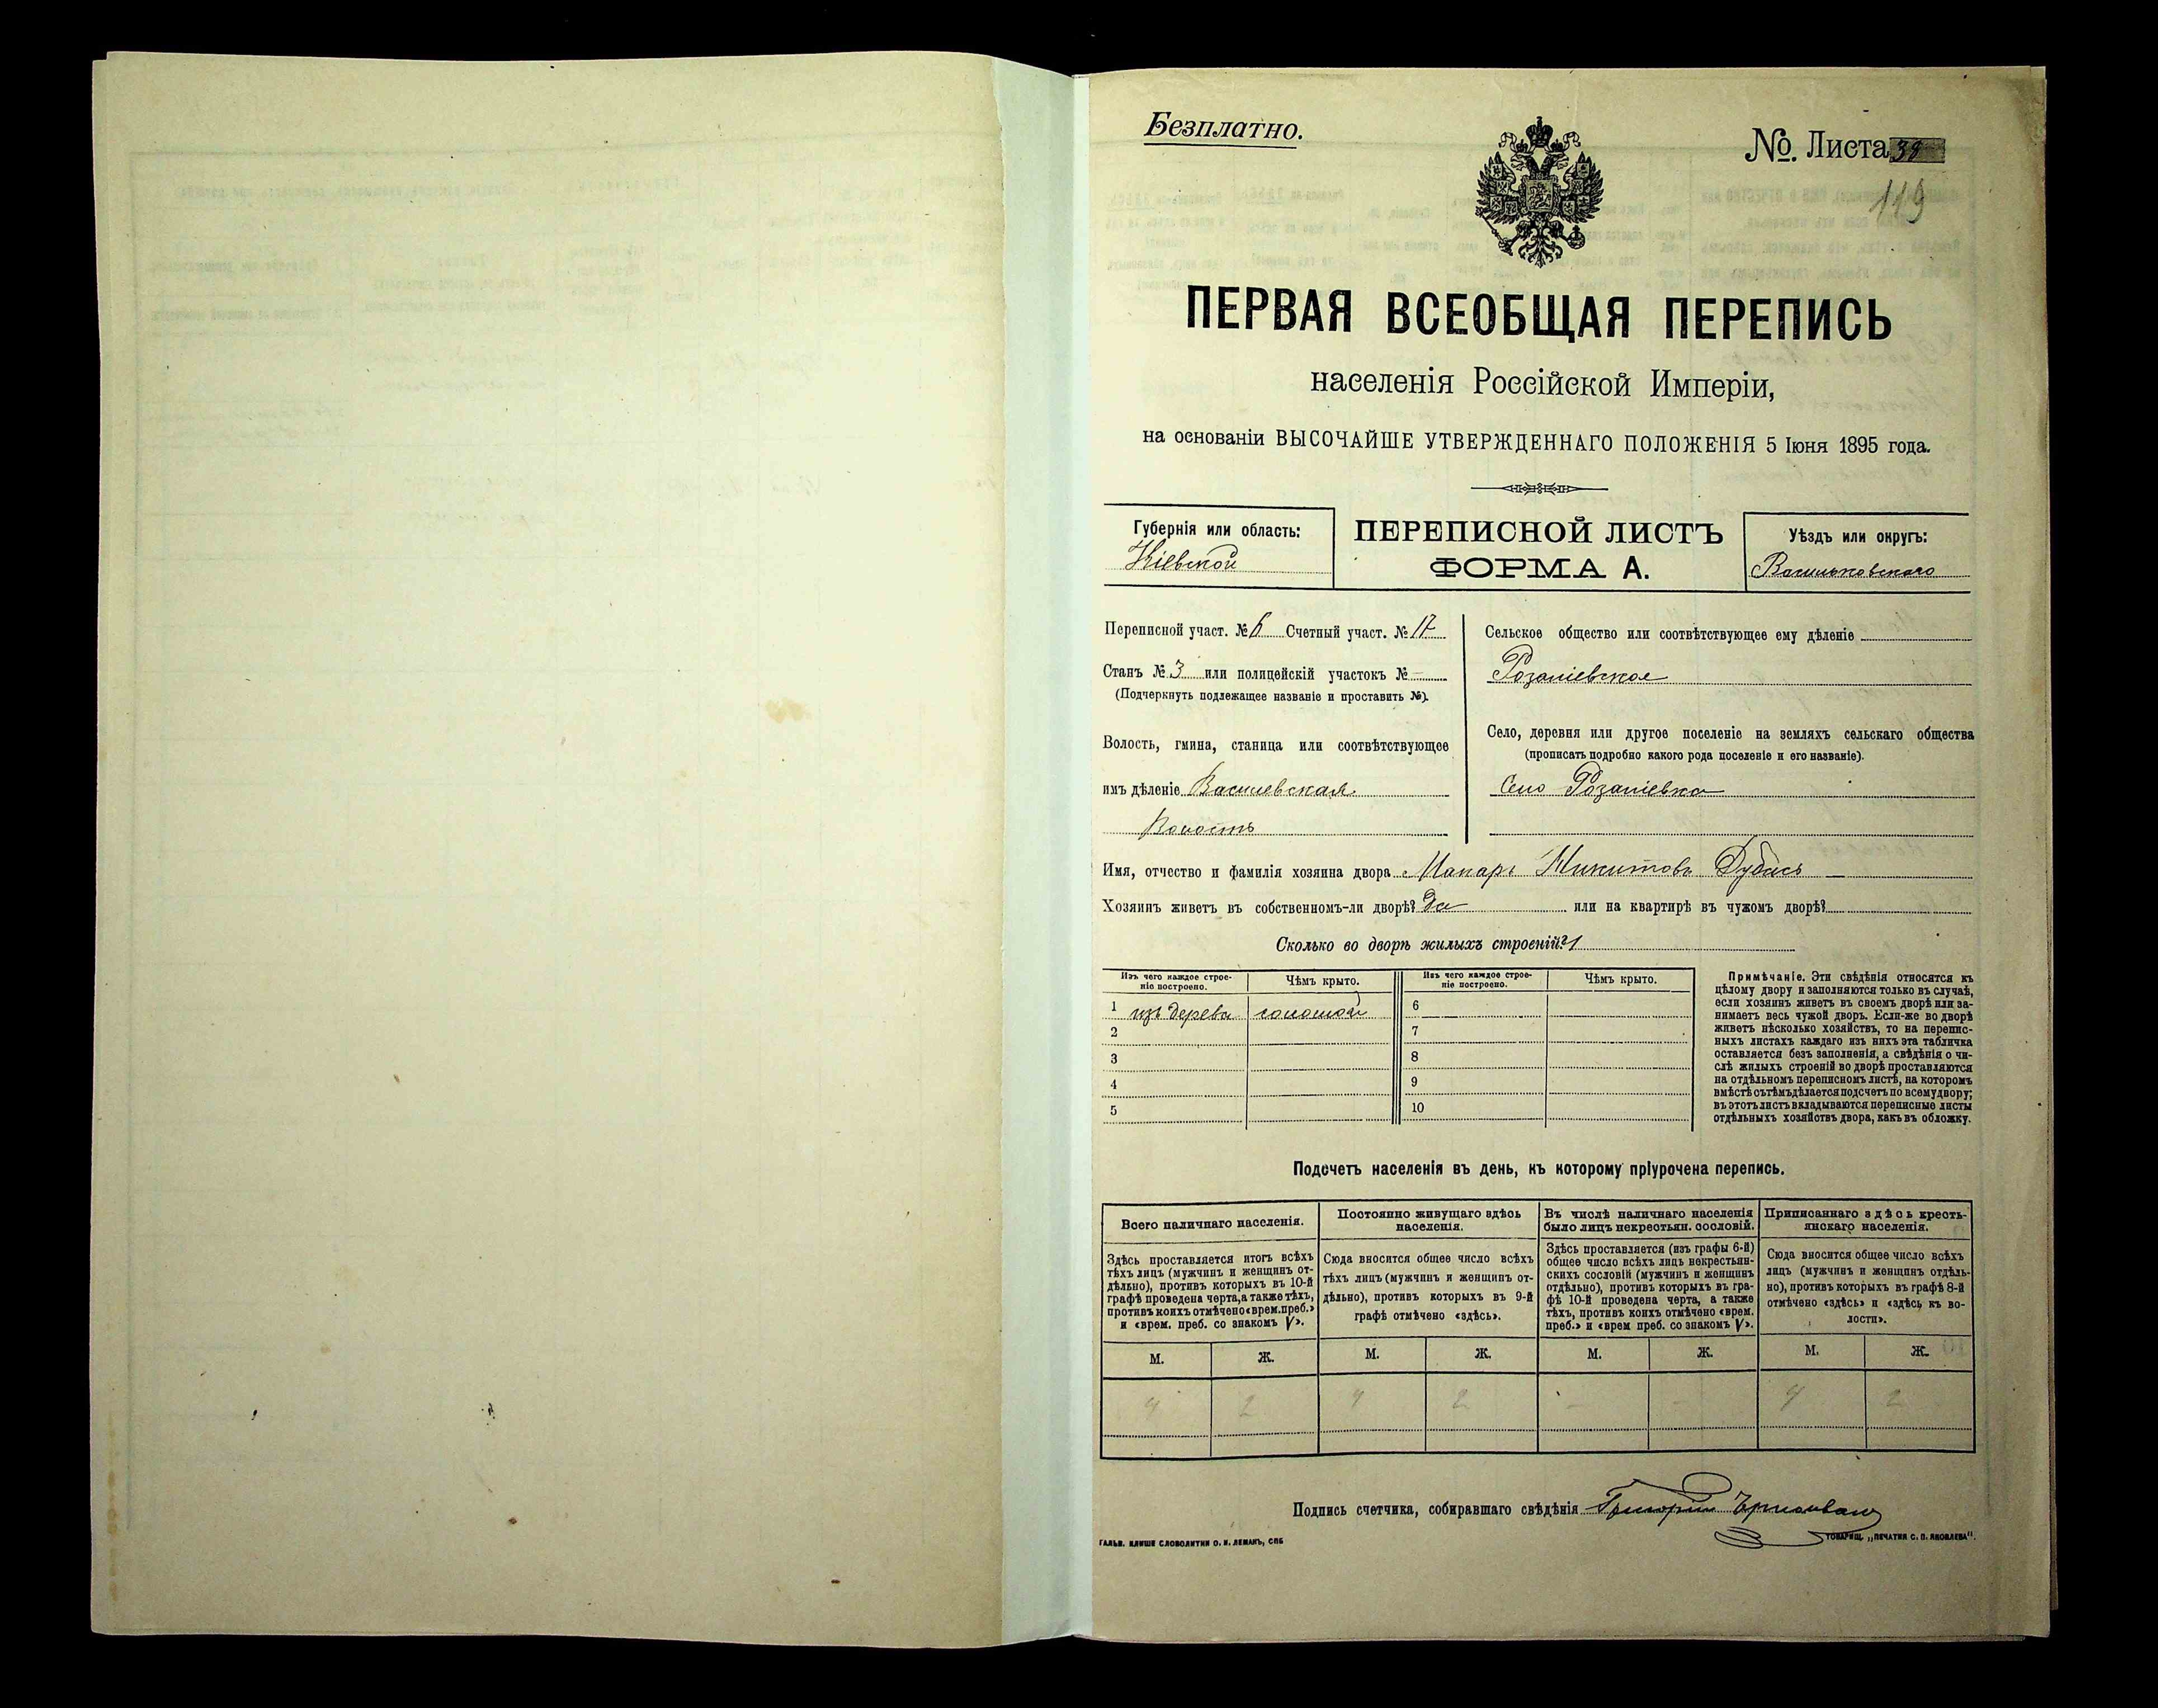 Безплатно.
№. Листа 38
119
ПЕРВАЯ ВСЕОБЩАЯ ПЕРЕПИСЬ
населенія Россійской Имперіи,
на основаніи ВЫСОЧАЙШЕ УТВЕРЖДЕННАГО ПОЛОЖЕНІЯ 5 Іюня 1895 года.
Губернія или область:
Кіевской
ПЕРЕПИСНОЙ ЛИСТЪ
ФОРМА А.
Уѣздъ или округъ:
Васильковскаго
Переписной участ. № 6 Счетный участ. № 17
Станъ № 3 или полицейскій участокъ № -
(Подчеркнуть подлежащее названіе и проставить №).
Волость, гмина, станица или соотвѣтствующее
имъ дѣленіе Василевская
Волость
Сельское общество или соотвѣтствующее ему дѣленіе
Розаліевское
Село, деревня или другое поселеніе на земляхъ сельскаго общества
(прописать подробно какого рода поселеніе и его названіе).
Село Розаліевка
Имя, отчество и фамилія хозяина двора Макаръ Микитовъ
Хозяинъ живетъ въ собственномъ-ли дворѣ? Да или на квартирѣ въ чужомъ дворѣ?
Сколько во дворѣ жилыхъ строеній? 1
Изъ чего каждое строе-
ніе построено.
Чѣмъ крыто.
Изъ чего каждое строе-
ніе построено.
Чѣмъ крыто.
1 изъ дерева соломой
2
3
4
5
6
7
8
9
10
Примѣчаніе. Эти свѣдѣнія относятся къ
цѣлому двору и заполняются только въ случаѣ,
если хозяинъ живетъ въ своемъ дворѣ или за-
нимаетъ весь чужой дворъ. Если-же во дворѣ
живетъ нѣсколько хозяйствъ, то на перепис-
ныхъ листахъ каждаго изъ нихъ эта табличка
оставляется безъ заполненія, а свѣдѣнія о чи-
слѣ жилыхъ строеній во дворѣ проставляются
на отдѣльномъ переписномъ листѣ, на которомъ
вмѣстѣ съ тѣмъ дѣлается подсчетъ по всему двору;
въ этотъ листъ вкладываются переписные листы
отдѣльныхъ хозяйствъ двора, какъ въ обложку.
Подсчетъ населенія въ день, къ которому пріурочена перепись.
Всего наличнаго населенія.
Здѣсь проставляется итогъ всѣхъ
тѣхъ лицъ (мужчинъ и женщинъ от-
дѣльно), противъ которыхъ въ 10-й
графѣ проведена черта, а также тѣхъ,
противъ коихъ отмѣчено «врем. преб.»
и «врем. преб. со знакомъ V».
Постоянно живущаго здѣсь
населенія.
Сюда вносится общее число всѣхъ
тѣхъ лицъ (мужчинъ и женщинъ от-
дѣльно), противъ которыхъ въ 9-й
графѣ отмѣчено «здѣсь».
Въ числѣ наличнаго населенія
было лицъ некрестьян. сословій.
Здѣсь проставляется (изъ графы 6-й)
общее число всѣхъ лицъ некрестьян-
скихъ сословій (мужчинъ и женщинъ
отдѣльно), противъ которыхъ въ гра-
фѣ 10-й проведена черта, а также
тѣхъ, противъ коихъ отмѣчено «врем.
преб.» и «врем преб. со знакомъ V».
Приписаннаго здѣсь кресть-
янскаго населенія.
Сюда вносится общее число всѣхъ
лицъ (мужчинъ и женщинъ отдѣль-
но), противъ которыхъ въ графѣ 8-й
отмѣчено «здѣсь» и «здѣсь къ во-
лости».
М. Ж. М. Ж. М. Ж. М. Ж.
4 2 4 2 - - 4 2
Подпись счетчика, собиравшаго свѣдѣнія Григорій
ГАЛЬВ. КЛИШЕ СЛОВОЛИТНИ О. И. ЛЕМАНЪ, СПБ
ТОВАРИЩ. „ПЕЧАТНЯ С. П. ЯКОВЛЕВА".